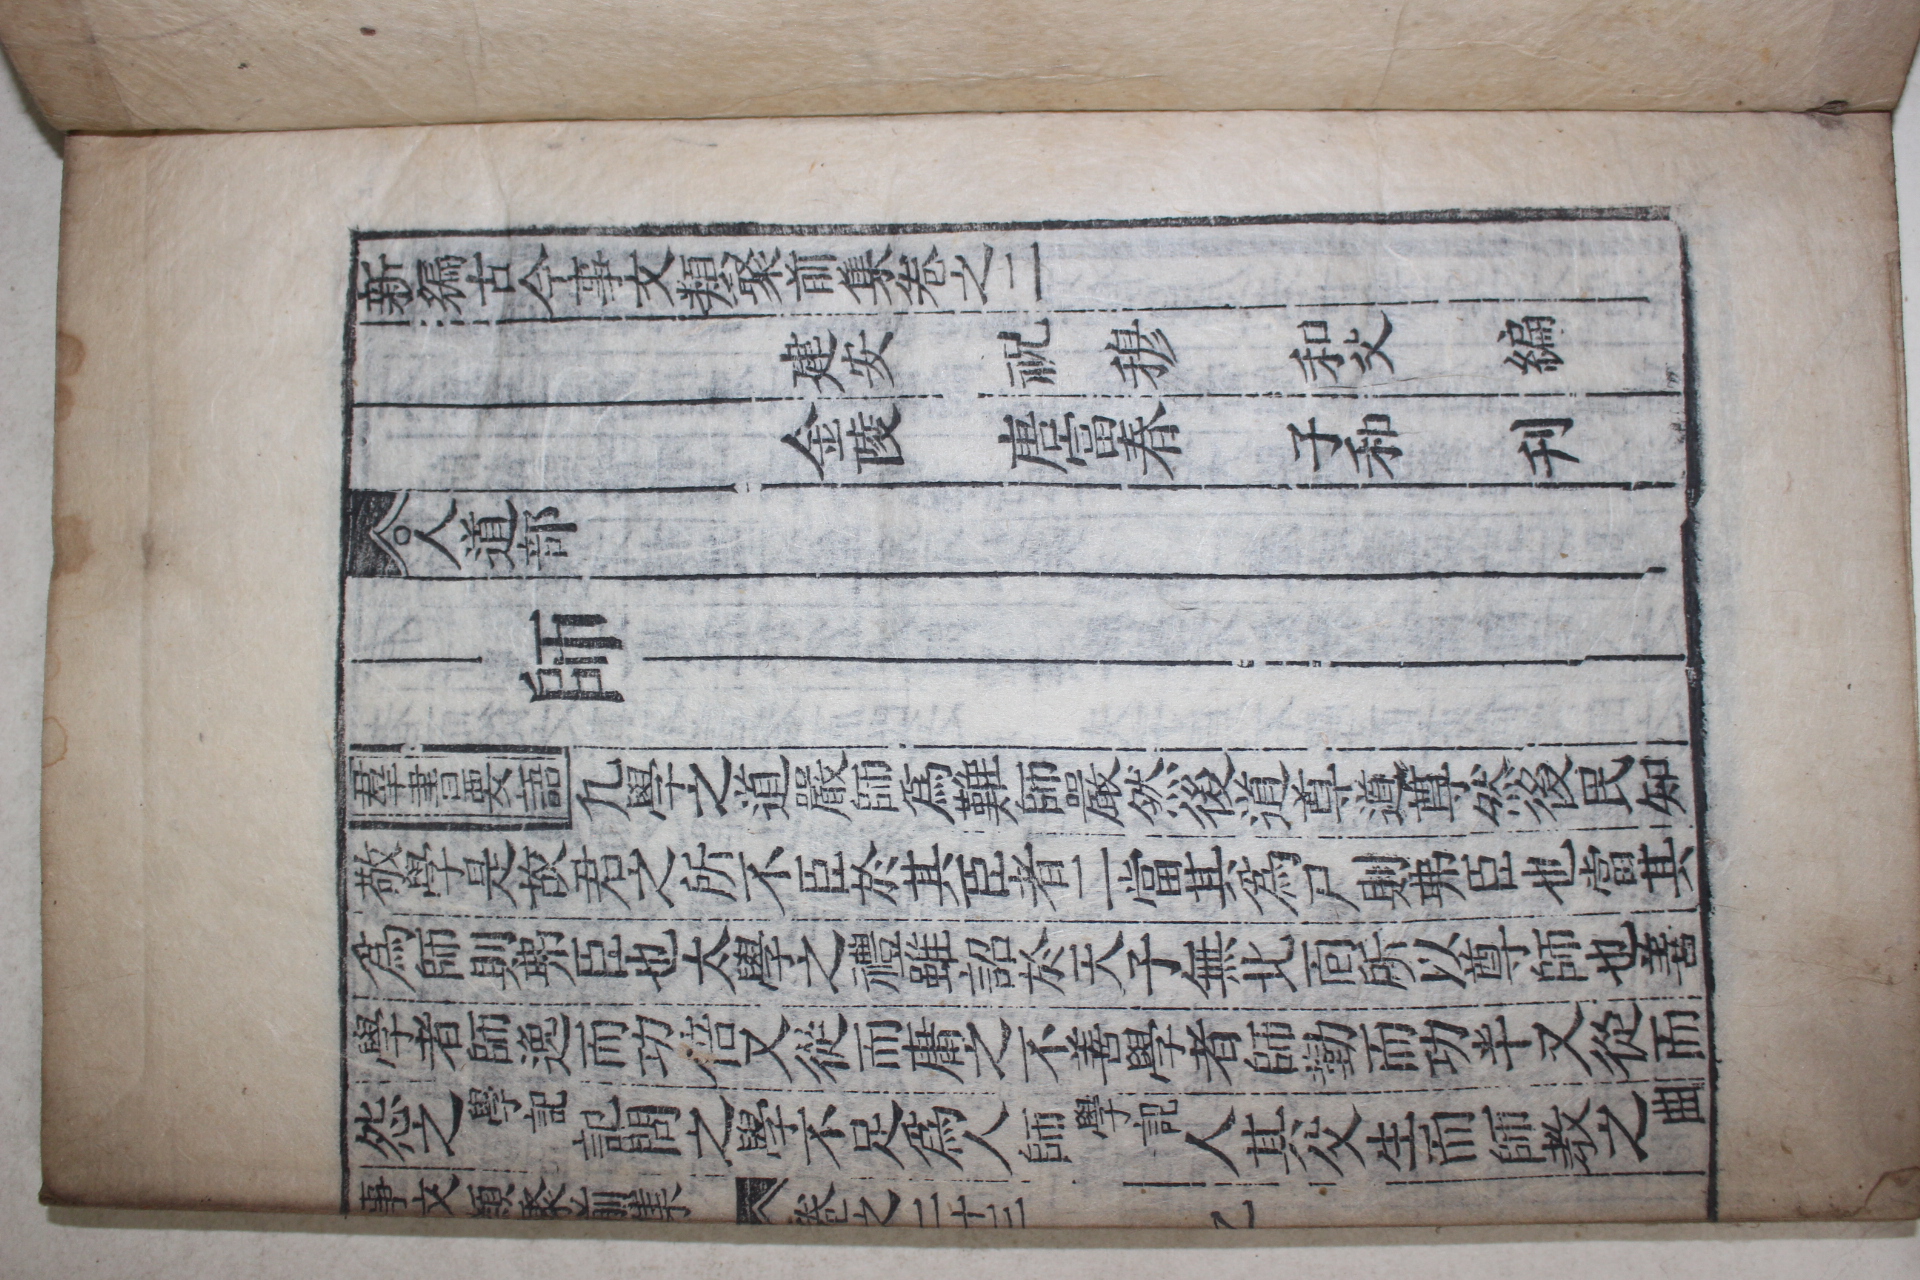 新編古今事文類聚前集卷之二
建安 祝 穆 和父 編
金陵 唐富春 子和 刊
人道部
師
羣書要語 凡學之道嚴師爲難師嚴然後道尊道尊然後民知
敬學是故君之所不臣於其臣者二當其爲尸則弗臣也當其
爲師則弗臣也太學之禮雖詔於天子無北面所以尊師也善
學者師逸而功倍又從而庸之不善學者師勤而功半又從而
怨之 學記 記問之學不足爲人師 學記 人其父生而師教之 曲
事文類聚前集 卷之二十三